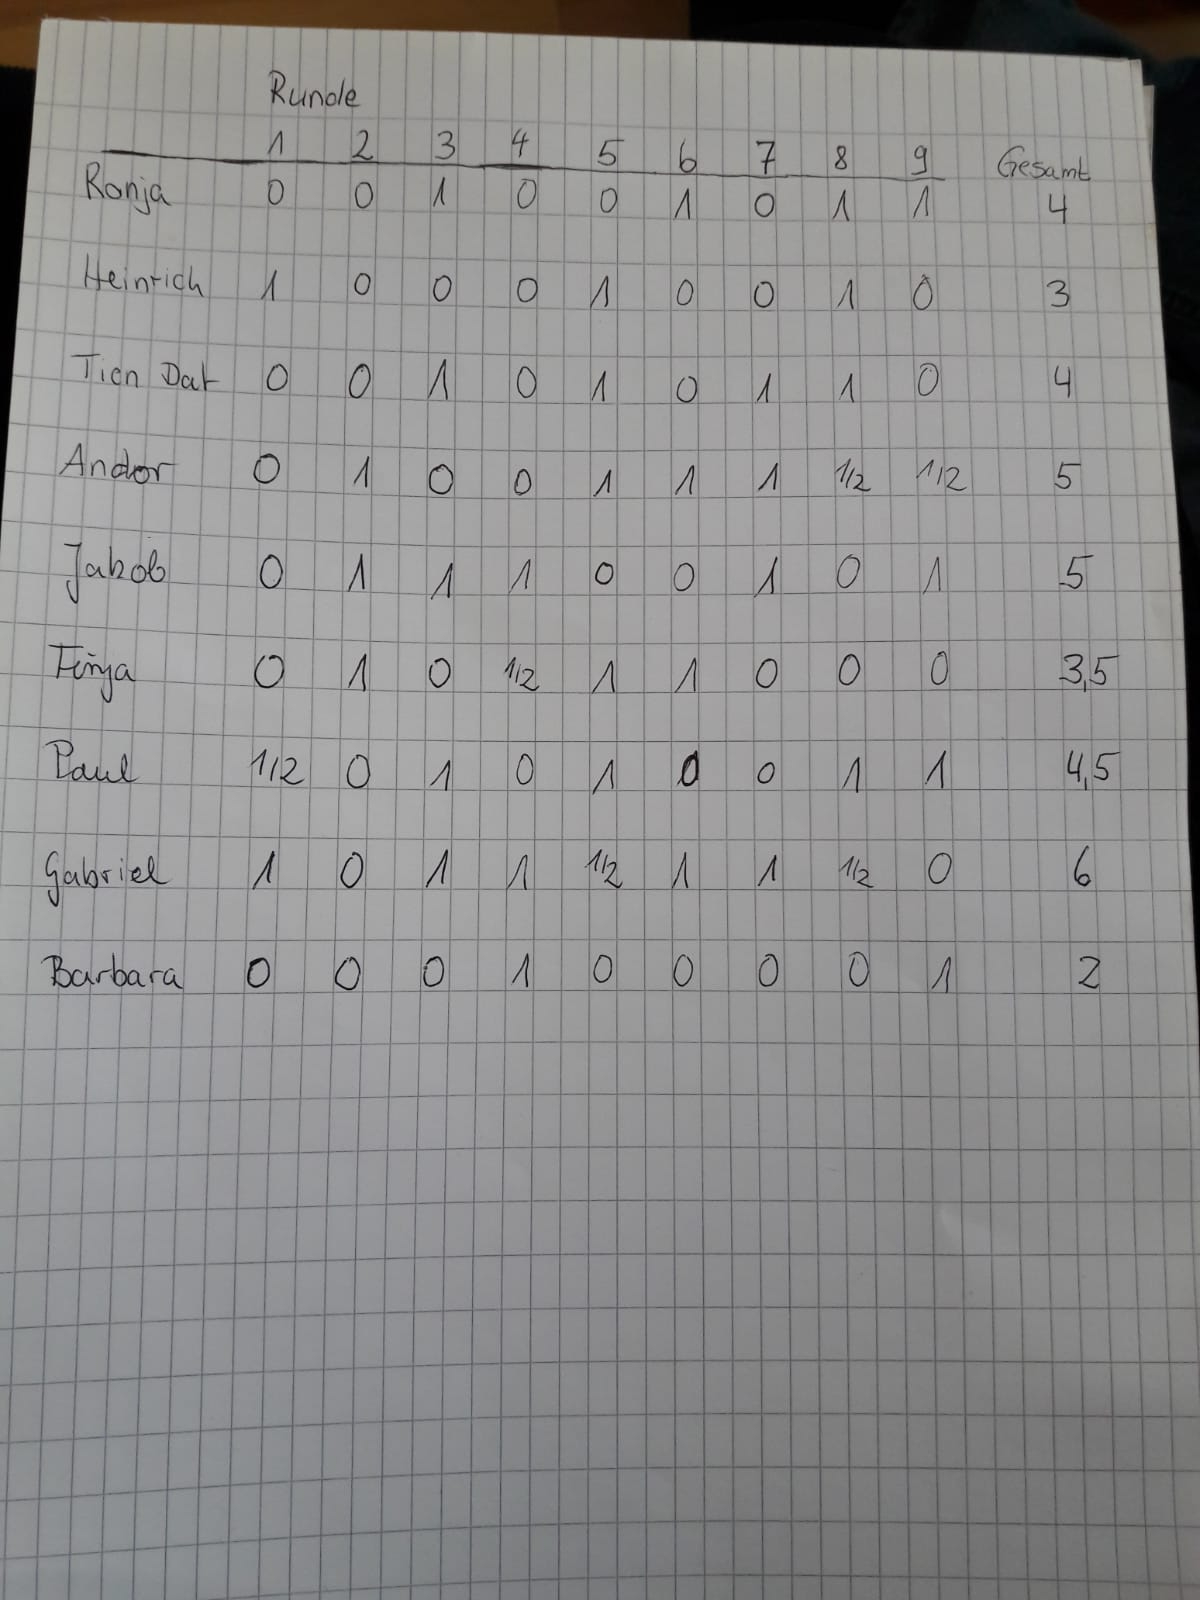 Runde
1 2 3 4 5 6 7 8 9 Gesamt
Ronja 0 0 1 0 0 1 0 1 1 4
Heinrich 1 0 0 0 1 0 0 1 0 3
Tien Dat 0 0 1 0 1 0 1 1 0 4
Andor 0 1 0 0 1 1 1 1/2 1/2 5
Jakob 0 1 1 1 0 0 1 0 1 5
Finja 0 1 0 1/2 1 1 0 0 0 3,5
Paul 1/2 0 1 0 1 0 0 1 1 4,5
Gabriel 1 0 1 1 1/2 1 1 1/2 0 6
Barbara 0 0 0 1 0 0 0 0 1 2